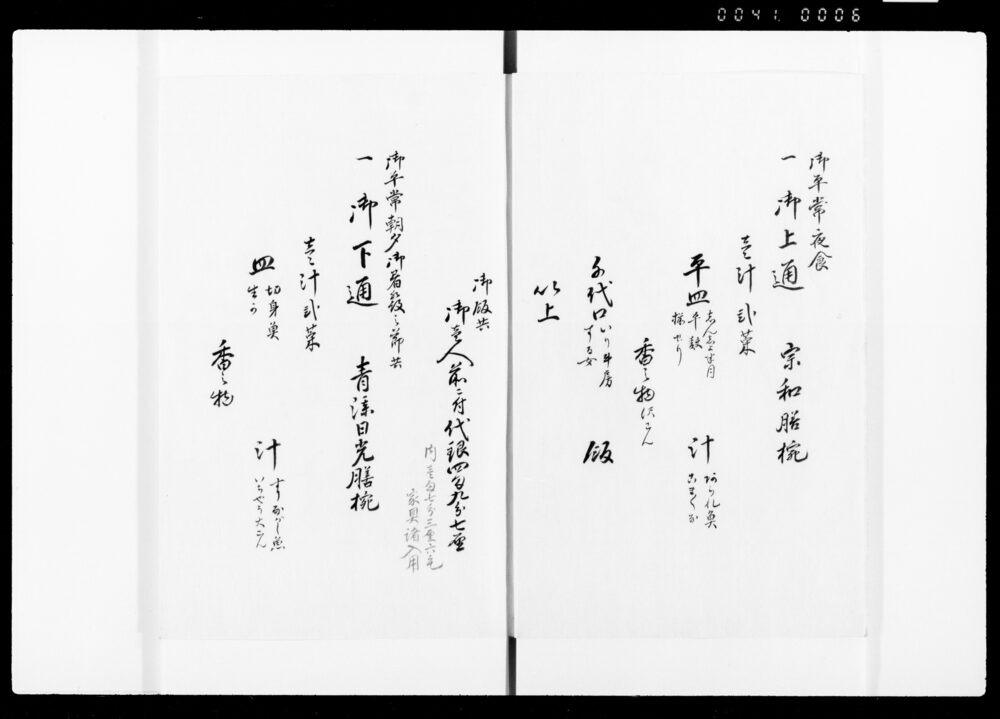 0041. 0006
御平常夜食
一 御上通 宗和膳椀
壱汁弐菜
平皿
汁
香之物
千代口 いり牛房
飯
以上
御飯共
御壱人前ニ付代銀四匁九分七厘
内壱匁七分三厘六毛
家具諸入用
御平常朝夕御着発之節共
一 御下通 青漆日光膳椀
壱汁弐菜
皿 切身魚
汁
香之物